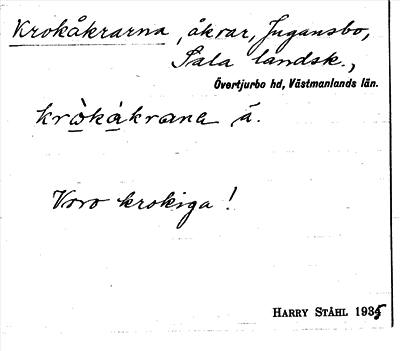 Krokåkrarna, åkrar, Jugansbo,
Sala landsk.,
Övertjurbo hd, Västmanlands län.
kròkåkrana å.
Voro krokiga!
HARRY STÅHL 1935